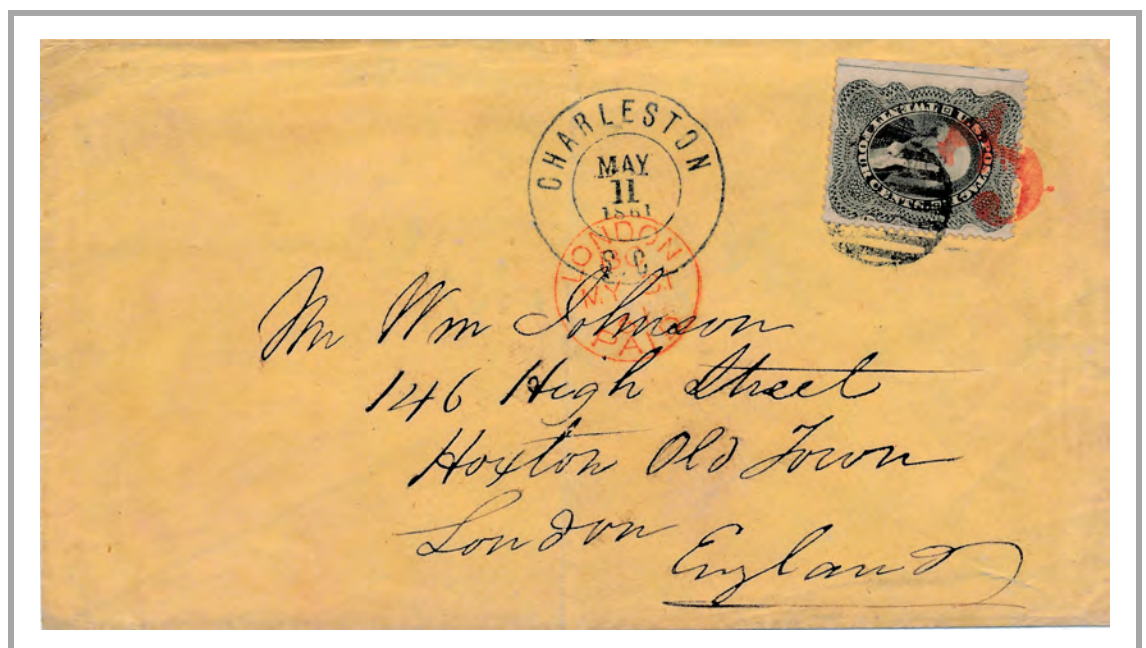 CHARLESTON
MAY
11
1861
S.C
LONDON
MY
PAID
U.S. POSTAGE
CENTS.
Mr Wm Johnson
146 High Street
Hoxton Old Town
London England